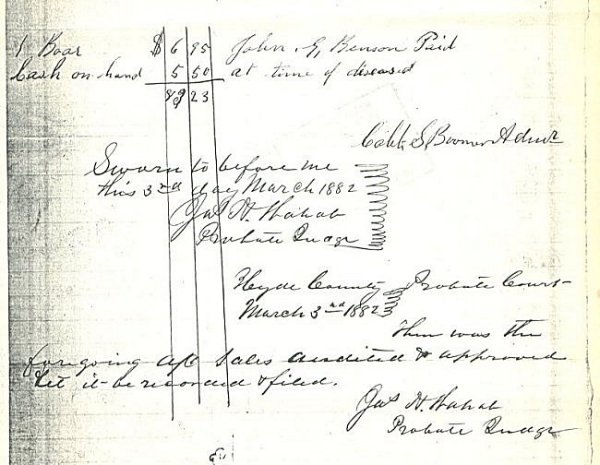 1 Boar $ 6 95 John, G, Benson Paid
Cash on hand 5 50 at time of diseased
89 23
Caleb S Boomer Admr
Sworn to before me
this 3rd day March 1882
Jas H. Wahab
Probate Judge
Hyde County Probate Court
March 3rd 1882
Then was the
foregoing a/c Sales audited & approved
Let it be recorded & filed.
Jas H. Wahab
Probate Judge